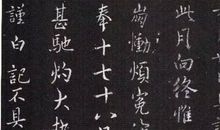 此月向終惟
哀慟煩冤
奉十七十八日
甚馳灼大
謹白記不具